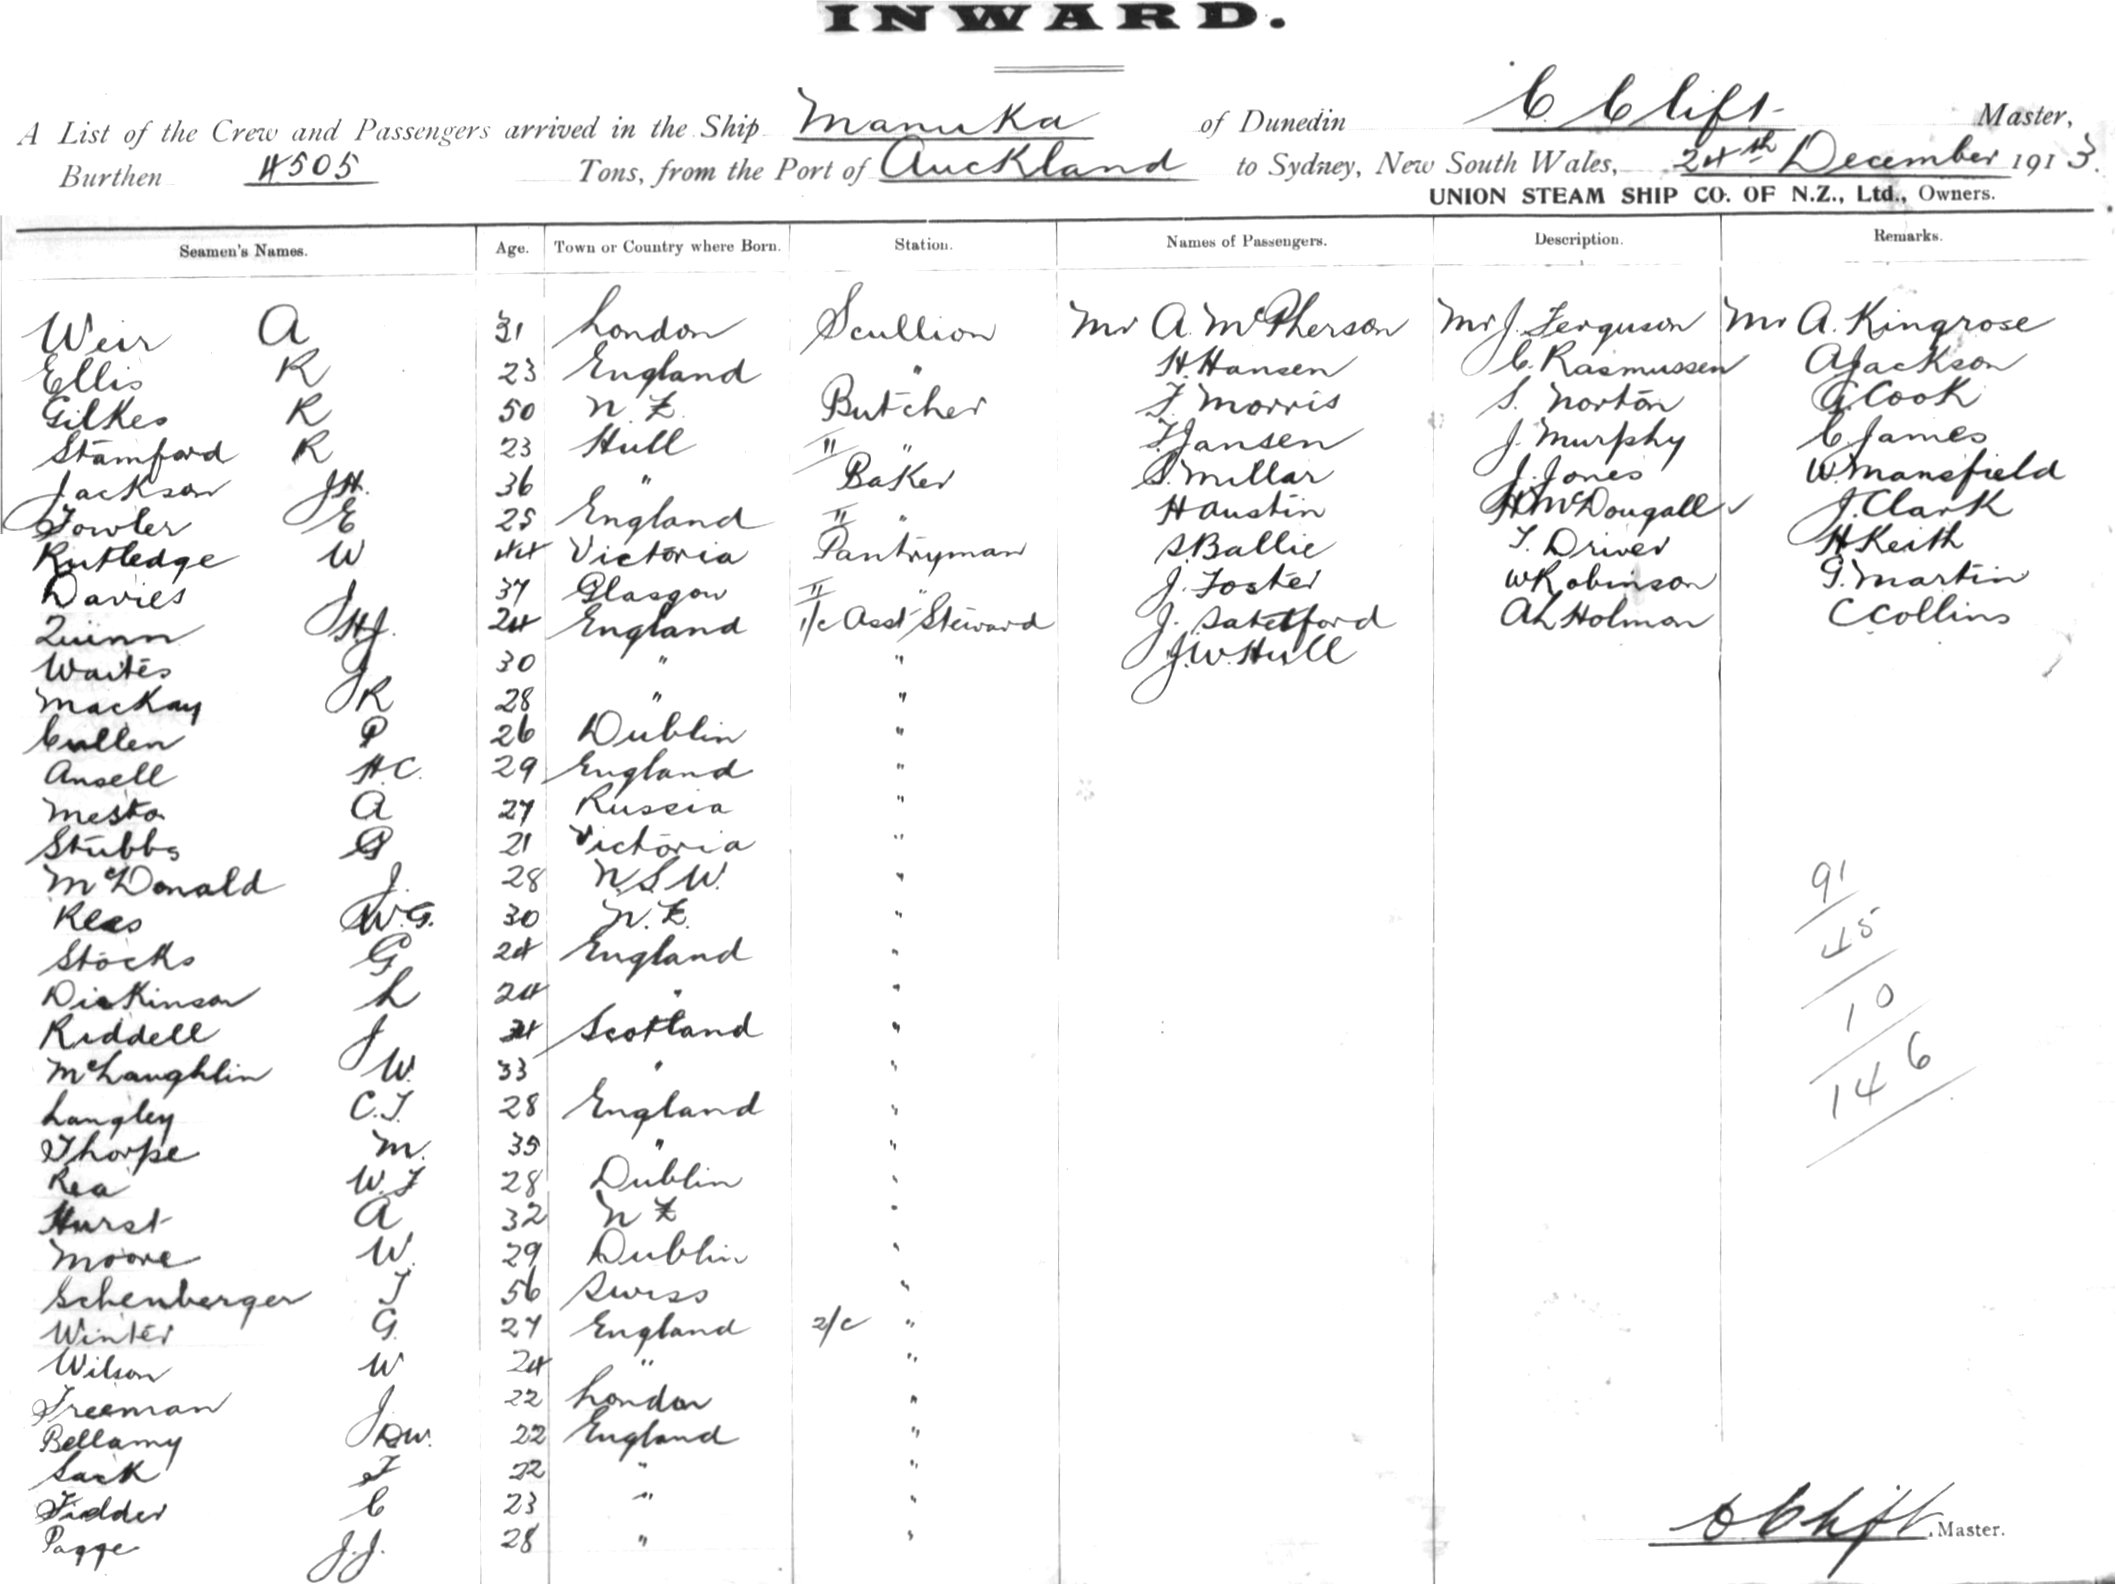 INWARD.
A List of the Crew and Passengers arrived in the Ship Manuka of Dunedin C. Clift Master,
Burthen 4505 Tons, from the Port of Auckland to Sydney, New South Wales, 24th December 1913.
UNION STEAM SHIP CO. OF N.Z., Ltd., Owners.
Seamen's Names. Age. Town or Country where Born. Station. Names of Passengers. Description. Remarks.
Weir A 31 London Scullion Mr A. McPherson Mr J. Ferguson Mr A. Kingrose
Ellis R 23 England " H. Hansen C. Rasmussen A Jackson
Gilkes R 50 N.Z. Butcher F Morris S. Norton G. Cook
Stamford R 23 Hull " " F. Jansen J. Murphy C James
Jackson J.H. 36 " Baker S. Millar J. Jones W. Mansfield
Fowler E 25 England " " H Austin H McDougall J. Clark
Rutledge W 44 Victoria Pantryman S. Ballie T. Driver H Keith
Davies J 37 Glasgow " " J. Foster W Robinson G. Martin
Quinn H.J. 24 England 1/c Asst Steward J. Satetford A L Holman C Collins
Waites J 30 " " J.W. Hull
Mackay R 28 " "
Cullen P 26 Dublin "
Ansell H.C. 29 England "
Mesta A 27 Russia "
Stubbs G 21 Victoria "
McDonald J. 28 N.S.W. "
Rees W.G. 30 N.Z. "
Stocks G 24 England "
Dickinson L 24 " "
Riddell J Scotland "
McLaughlin W. 33 " "
Langley C.T. 28 England "
Thorpe M. 35 " "
Rea W.J 28 Dublin "
Hurst A 32 N Z "
Moore W. 29 Dublin "
Schenberger J 56 Swiss "
Winter G. 27 England 2/c "
Wilson W 24 " "
Freeman J. 22 London "
Bellamy D.W. 22 England "
Sark F 22 " "
Fidder C 23 " "
Pagge J.J. 28 " "
91
45
10
146
C Clift, Master.